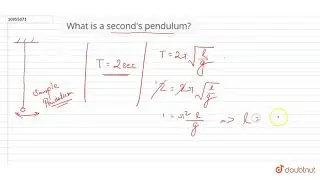 10955071
What is a second's pendulum?
T = 2 sec
Simple
Pendulum
T = 2π√(l/g)
2 = 2π√(l/g)
1 = π² l/g ⇒ l =
doubtnut